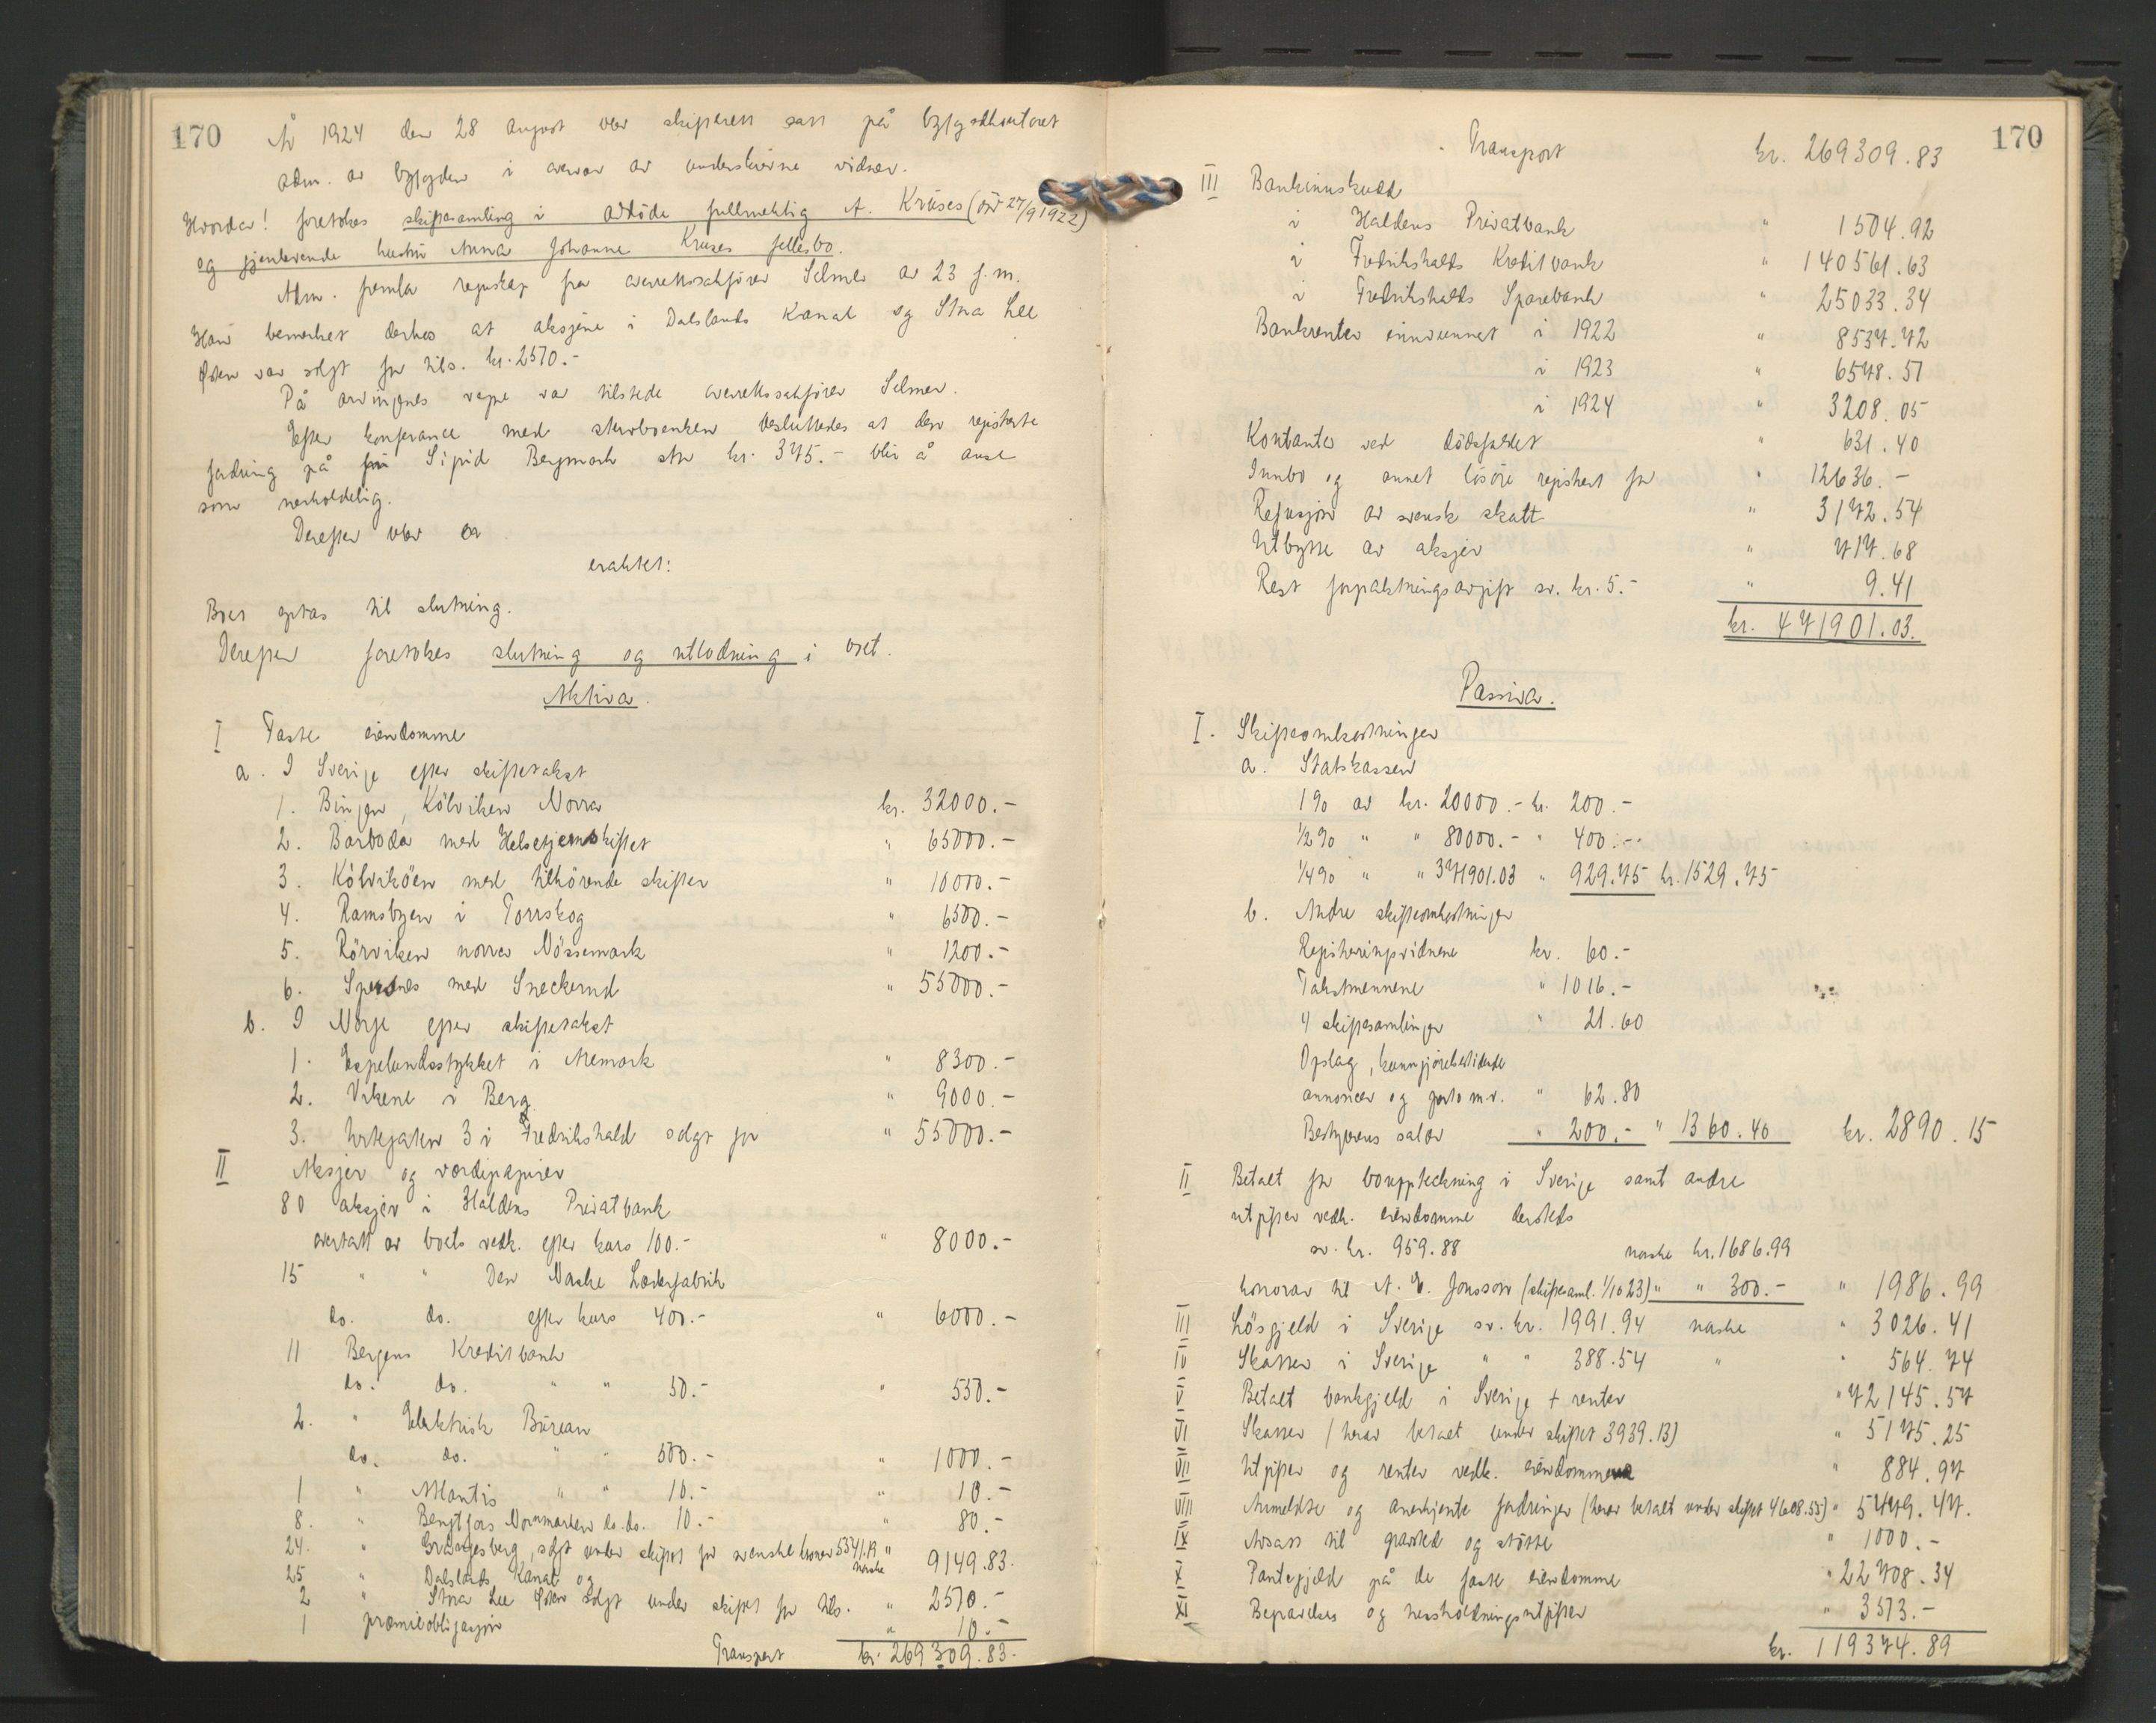 170
År 1924 den 28 august blev skifterett satt på byfogedkontoret
adm. av byfogden i overvær av underskrevne vidner.
Hvorda! foretokes skiftesamling i avdöde fullmektig A. Kruses (död 27/9 1922)
og gjenlevende hustru Anna Johanne Kruses fellesbo.
Adm. fremla regnskap fra overrettssakförer Selmer av 23 f.m.
Han bemerket derhos at aksjene i Dalslands Kanal og Stora Lee
Östen var solgt for tils. kr. 2570.-
På arvingenes vegne var tilstede overrettssakförer Selmer.
Efter konferance med skarbrænken besluttedes at den registrerte
fordring på fru Sigrid Bergmark stor kr. 375.- blir å anse
som uerholdelig.
Derefter blev er
eraktet:
Boet optas til slutning.
Derefter foretokes slutning og utlodning i boet.
Aktiva.
I Faste eiendomme
a. I Sverige efter skiftetakst
1. Bingen, Kölviken Norra kr. 32000.-
2. Barboda med Helsetjernskiftet " 65000.-
3. Kölviköen med tilhörende skifter " 10000.-
4. Ramsbyen i Torrskog " 6500.-
5. Rörviken norra Nössemark " 1200.-
6. Sperdnes med Sneckernd " 55000.-
b. I Norge efter skiftetakst
1. Espelundsstykket i Aremark " 8300.-
2. Vikene i Berg " 9000.-
3. Urtegaten 3 i Fredrikshald solgt for " 55000.-
II Aksjer og værdipapirer
80 aksjer i Haldens Privatbank
overtatt av boets vedk. efter kurs 100.- " 8000.-
15 " " Den Norske Læderfabrik
do. do. efter kurs 400.- " 6000.-
11 Bergens Kreditbank
do. do. " " 50.- " 550.-
2. " Elektrisk Bureau
do. do. " " 500.- " 1000.-
1 " Atlantis " " 10.- " 10.-
8. " Bengtfors Nornmarken do. do. 10.- " 80.-
24. " Grängesberg, solgt under skiftet for svenske kroner 5541.19 norske " 9149.83.
25 " Dalslands Kanal og
2 " Stora Lee Östen solgt under skiftet for tils. " 2570.-
1 præmieobligasjon " 10.-
Transport kr. 269309.83.
170
Transport kr. 269309.83
III Bankinnskudd
i Haldens Privatbank " 1504.92
i Fredrikshalds Kreditbank " 140561.63
i Fredrikshalds Sparebank " 25033.34
Bankrenter innvunnet i 1922 " 8537.72
i 1923 " 6578.51
i 1924 " 3208.05
Kontanter ved dödsfaldet " 631.40
Innbo og annet lösöre registrert for " 12636.-
Refusjon av svensk skatt " 3172.54
Utbytte av aksjer " 717.68
Rest forpaktningsavgift sv. kr. 5.- " 9.41
kr. 471901.03.
Passiva.
I. Skifteomkostninger
a. Statskassen
1% av kr. 20000.- kr. 200.-
1/2% " " 80000.- " 400.-
1/4% " " 371901.03 " 929.75 kr. 1529.75
b. Andre skifteomkostninger
Registreringsvidnene kr. 60.-
Takstmennene " 1016.-
4 skiftesamlinger " 21.60
Opslag, kunngjörelsestidende
annoncer og porto m.v. " 62.80
Bestyrerens salær " 200.- " 1360.40 kr. 2890.15
II Betalt for bouppteckning i Sverige samt andre
utgifter vedk. eiendomme dersteds
sv. kr. 959.88 norske kr. 1686.99
honorar til A. E. Jonsson (skiftesaml. 1/10 23) " " 300.- " 1986.99
III Lösgjeld i Sverige sv. kr. 1991.94 norske " 3026.41
IV Skatter i Sverige " " 388.54 " " 564.74
V Betalt bankgjeld i Sverige + renter " 72145.57
VI Skatter (herav betalt under skiftet 3939.13) " 5175.25
VII Utgifter og renter vedk. eiendommene " 884.97
VIII Anmeldte og anerkjente fordringer (herav betalt under skiftet 4608.55) " 5449.47.
IX Avsatt til gravsted og stötte " 1000.-
X Pantegjeld på de faste eiendomme " 22708.34
XI Begravelses og husholdningsutgifter " 3573.-
kr. 119374.89